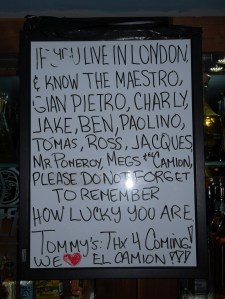 IF YOU LIVE IN LONDON,
& KNOW THE MAESTRO,
GIAN PIETRO, CHARLY,
JAKE, BEN, PAOLINO,
TOMAS, ROSS, JACQUES,
MR POMEROY, MEGS CAMION,
PLEASE DO NOT FORGET
TO REMEMBER
HOW LUCKY YOU ARE.
TOMMY'S: THX 4 COMING!
WE ❤ EL CAMION !!!